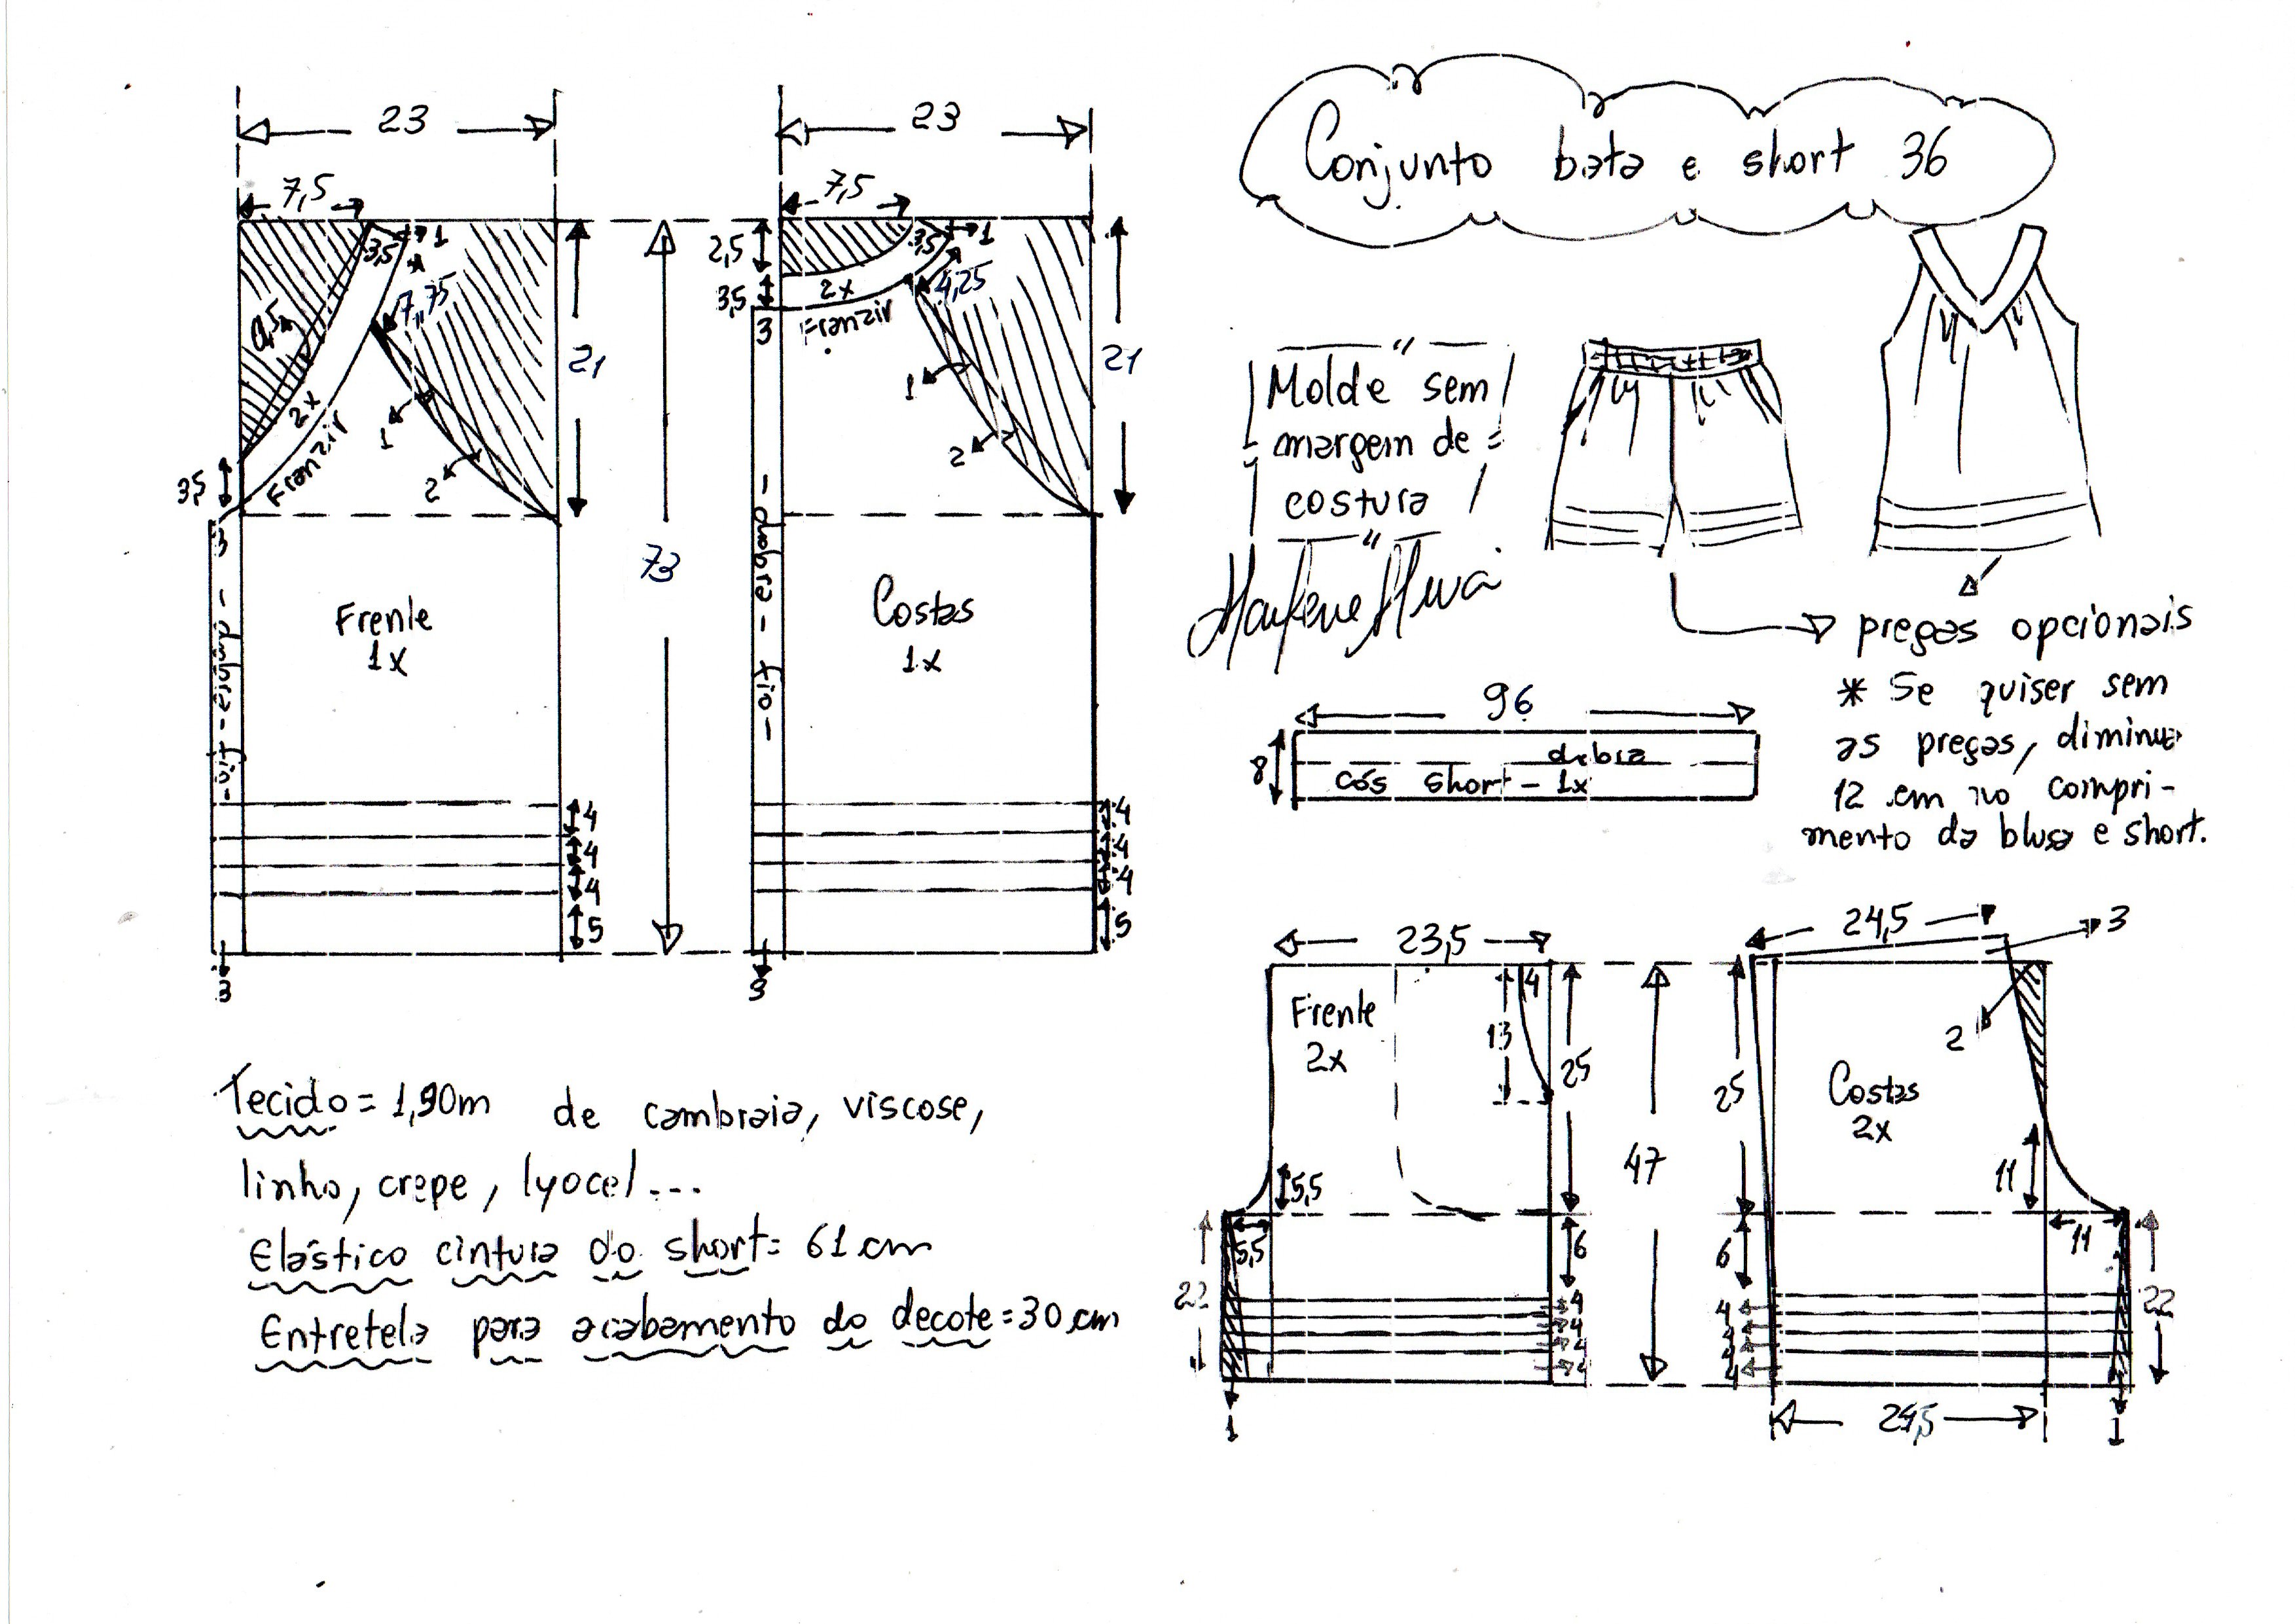 Conjunto bata e short 36
23
7,5
3,5
1
7,75
2x
Franzir
1
2
21
3,5
3
- dobra - fio -
Frente
1x
4
4
4
5
3
73
23
7,5
2,5
3,5
3,5
1
4,25
2x
Franzir
3
1
2
21
- dobra - fio -
Costas
1x
4
4
4
5
3
"
Molde sem
margem de
costura
"
pregas opcionais
* Se quiser sem
as pregas, diminue
12 cm no compri-
mento da blusa e short.
96
8
dobra
cós short - 1x
23,5
Frente
2x
4
13
25
5,5
5,5
6
4
4
4
4
22
1
47
24,5
3
2
25
Costas
2x
11
11
6
4
4
4
4
22
24,5
1
Tecido = 1,90m de cambraia, viscose,
linho, crepe, lyocel...
Elástico cintura do short = 61 cm
Entretela para acabamento do decote = 30 cm